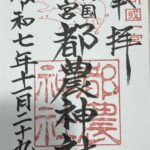 拝
国
宮
都農神社
令和七年十一月二十九
都農
神社